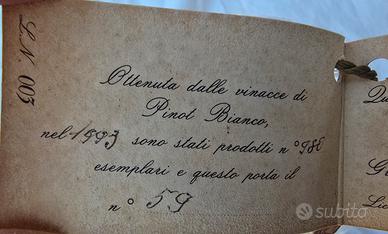 L.N. 003
Ottenuta dalle vinacce di
Pinot Bianco,
nel 1993 sono stati prodotti n° 986
esemplari e questo porta il
n° 59
Q
G
Lic
subito